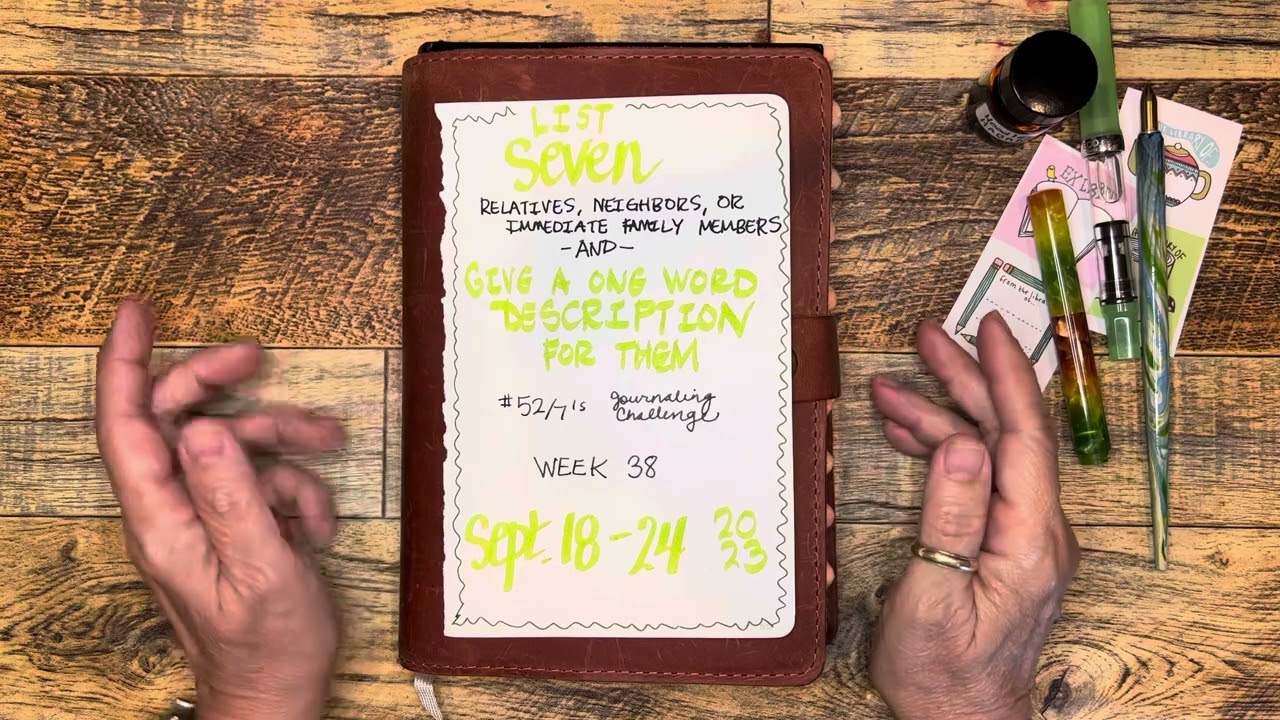 LIST
Seven
RELATIVES, NEIGHBORS, OR
IMMEDIATE FAMILY MEMBERS
-AND-
GIVE A ONE WORD
DESCRIPTION
FOR THEM
#52/7's Journaling
Challenge
WEEK 38
Sept. 18-24 20
23
LIBRARY OF
EX LIBRIS
OF
from the library
of...